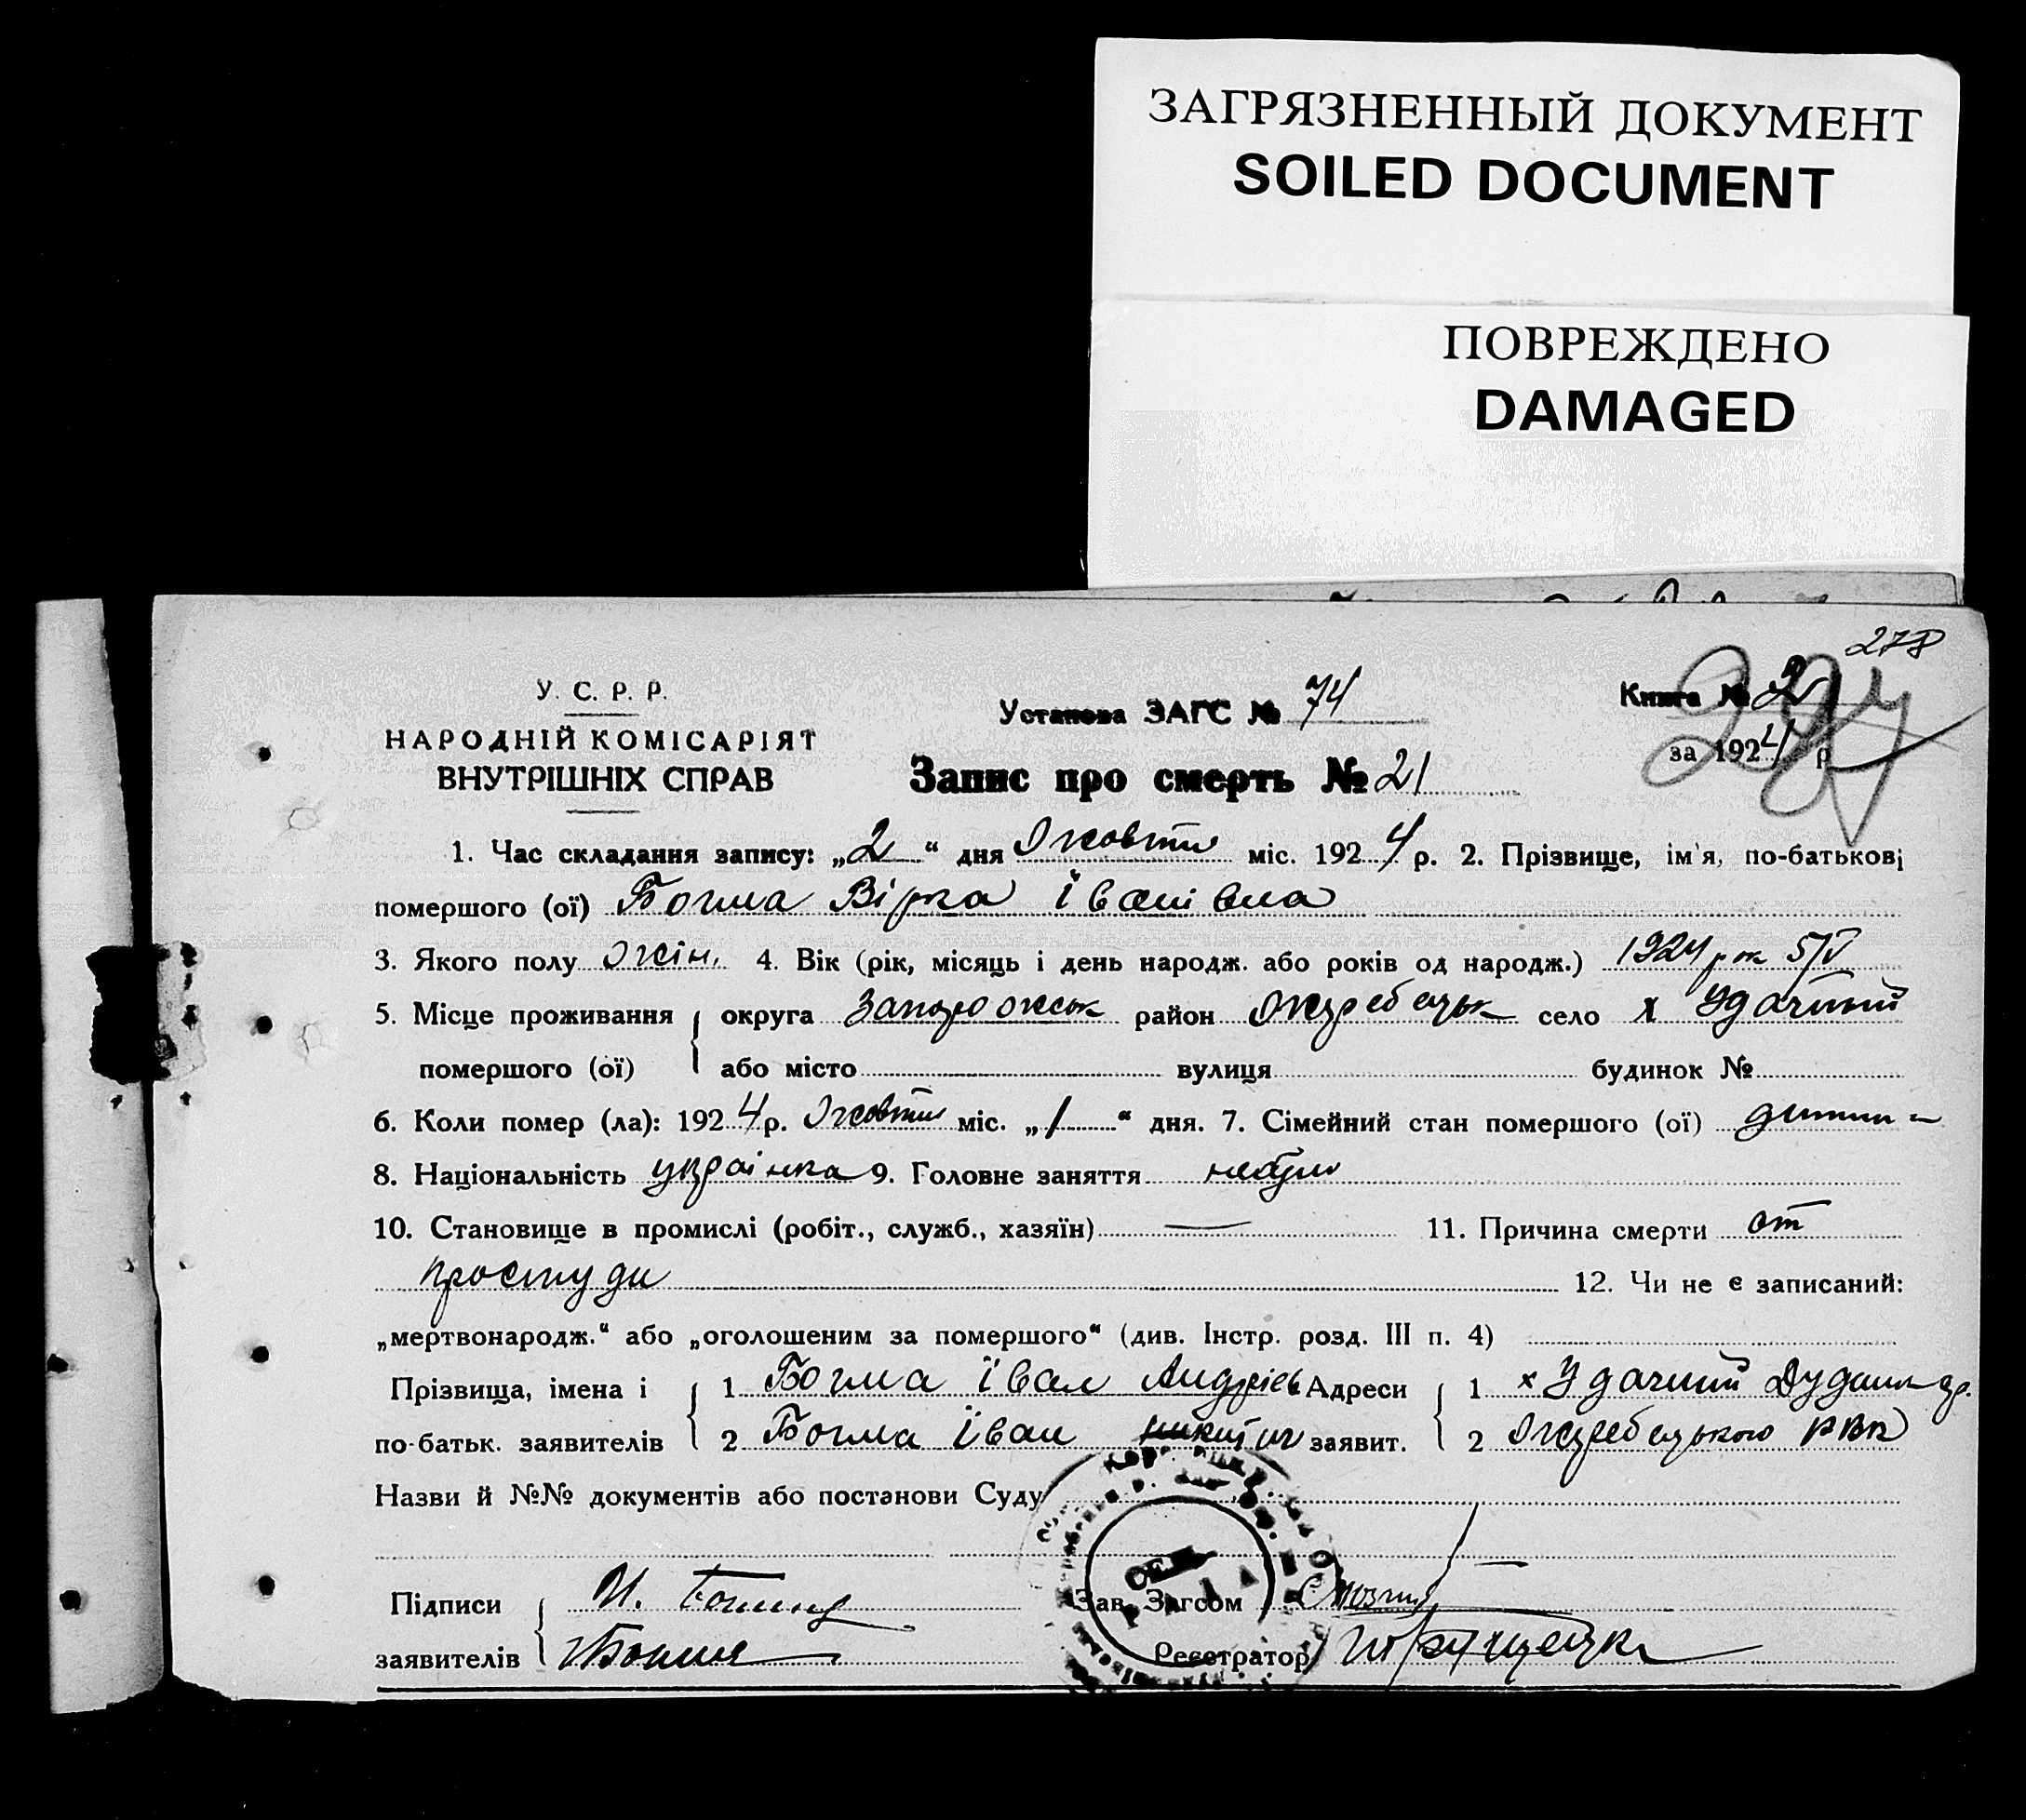 ЗАГРЯЗНЕННЫЙ ДОКУМЕНТ
SOILED DOCUMENT
ПОВРЕЖДЕНО
DAMAGED
278
У. С. Р. Р.
НАРОДНІЙ КОМІСАРІЯТ
ВНУТРІШНІХ СПРАВ
Установа ЗАГС № 74
Книга № 2
за 1924 р
Запис про смерть № 21
1. Час складання запису: „2“ дня Жовтня міс. 1924 р. 2. Прізвище, ім'я, по-батькові
помершого (ої) Богма Вірка Іванівна
3. Якого полу жін. 4. Вік (рік, місяць і день народж. або років од народж.) 1924 рок 5/V
5. Місце проживання округа Запорожськ район Жеребецьк село х Удачний
помершого (ої) або місто вулиця будинок №
6. Коли помер (ла): 1924 р. Жовтня міс. „1“ дня. 7. Сімейний стан помершого (ої) дитина
8. Національність українка 9. Головне заняття небуло
10. Становище в промислі (робіт., служб., хазяїн) — 11. Причина смерти от
простуди
12. Чи не є записаний:
„мертвонародж.“ або „оголошеним за помершого“ (див. Інстр. розд. III п. 4)
Прізвища, імена і 1 Богма Іван Андріев Адреси 1 х Удачний
по-батьк. заявителів 2 Богма Іван Никитич заявит. 2 Жеребецького РВК
Назви й №№ документів або постанови Суду
Підписи И. Богма Зав. Загсом
заявителів Реєстратор